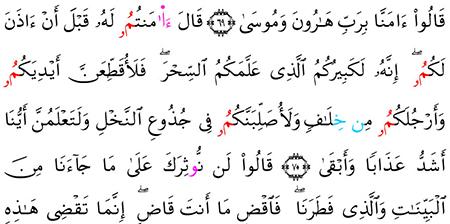 قَالُوٓا۟ ءَامَنَّا بِرَبِّ هَٰرُونَ وَمُوسَىٰ ﴿٦٩﴾ قَالَ ءَا۬مَنتُمُۥ لَهُۥ قَبْلَ أَنْ ءَاذَنَ
لَكُمُۥٓ ۖ إِنَّهُۥ لَكَبِيرُكُمُ ٱلَّذِى عَلَّمَكُمُ ٱلسِّحْرَ ۖ فَلَأُقَطِّعَنَّ أَيْدِيَكُمُۥ
وَأَرْجُلَكُمُۥ مِن خِلَٰفٍ وَلَأُصَلِّبَنَّكُمُۥ فِى جُذُوعِ ٱلنَّخْلِ وَلَتَعْلَمُنَّ أَيُّنَا
أَشَدُّ عَذَابًا وَأَبْقَىٰ ﴿٧٠﴾ قَالُوا۟ لَن نُّوثِرَكَ عَلَىٰ مَا جَآءَنَا مِنَ
ٱلْبَيِّنَٰتِ وَٱلَّذِى فَطَرَنَا ۖ فَٱقْضِ مَا أَنتَ قَاضٍ ۖ إِنَّمَا تَقْضِى هَٰذِهِ